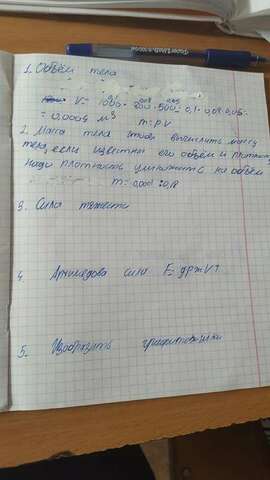 1. Объём тела
V = 1000 · 200 · 500 = 0,1 · 0,08 · 0,05 =
= 0,0004 м³ m = ρ·V
2. Масса тела чтобы вычислить массу
тела, если известны его объём и плотность,
надо плотность умножить на объём
m = 0,0004
3. Сила тяжести
4. Архимедова сила F = gρжVт
5. Изобразить